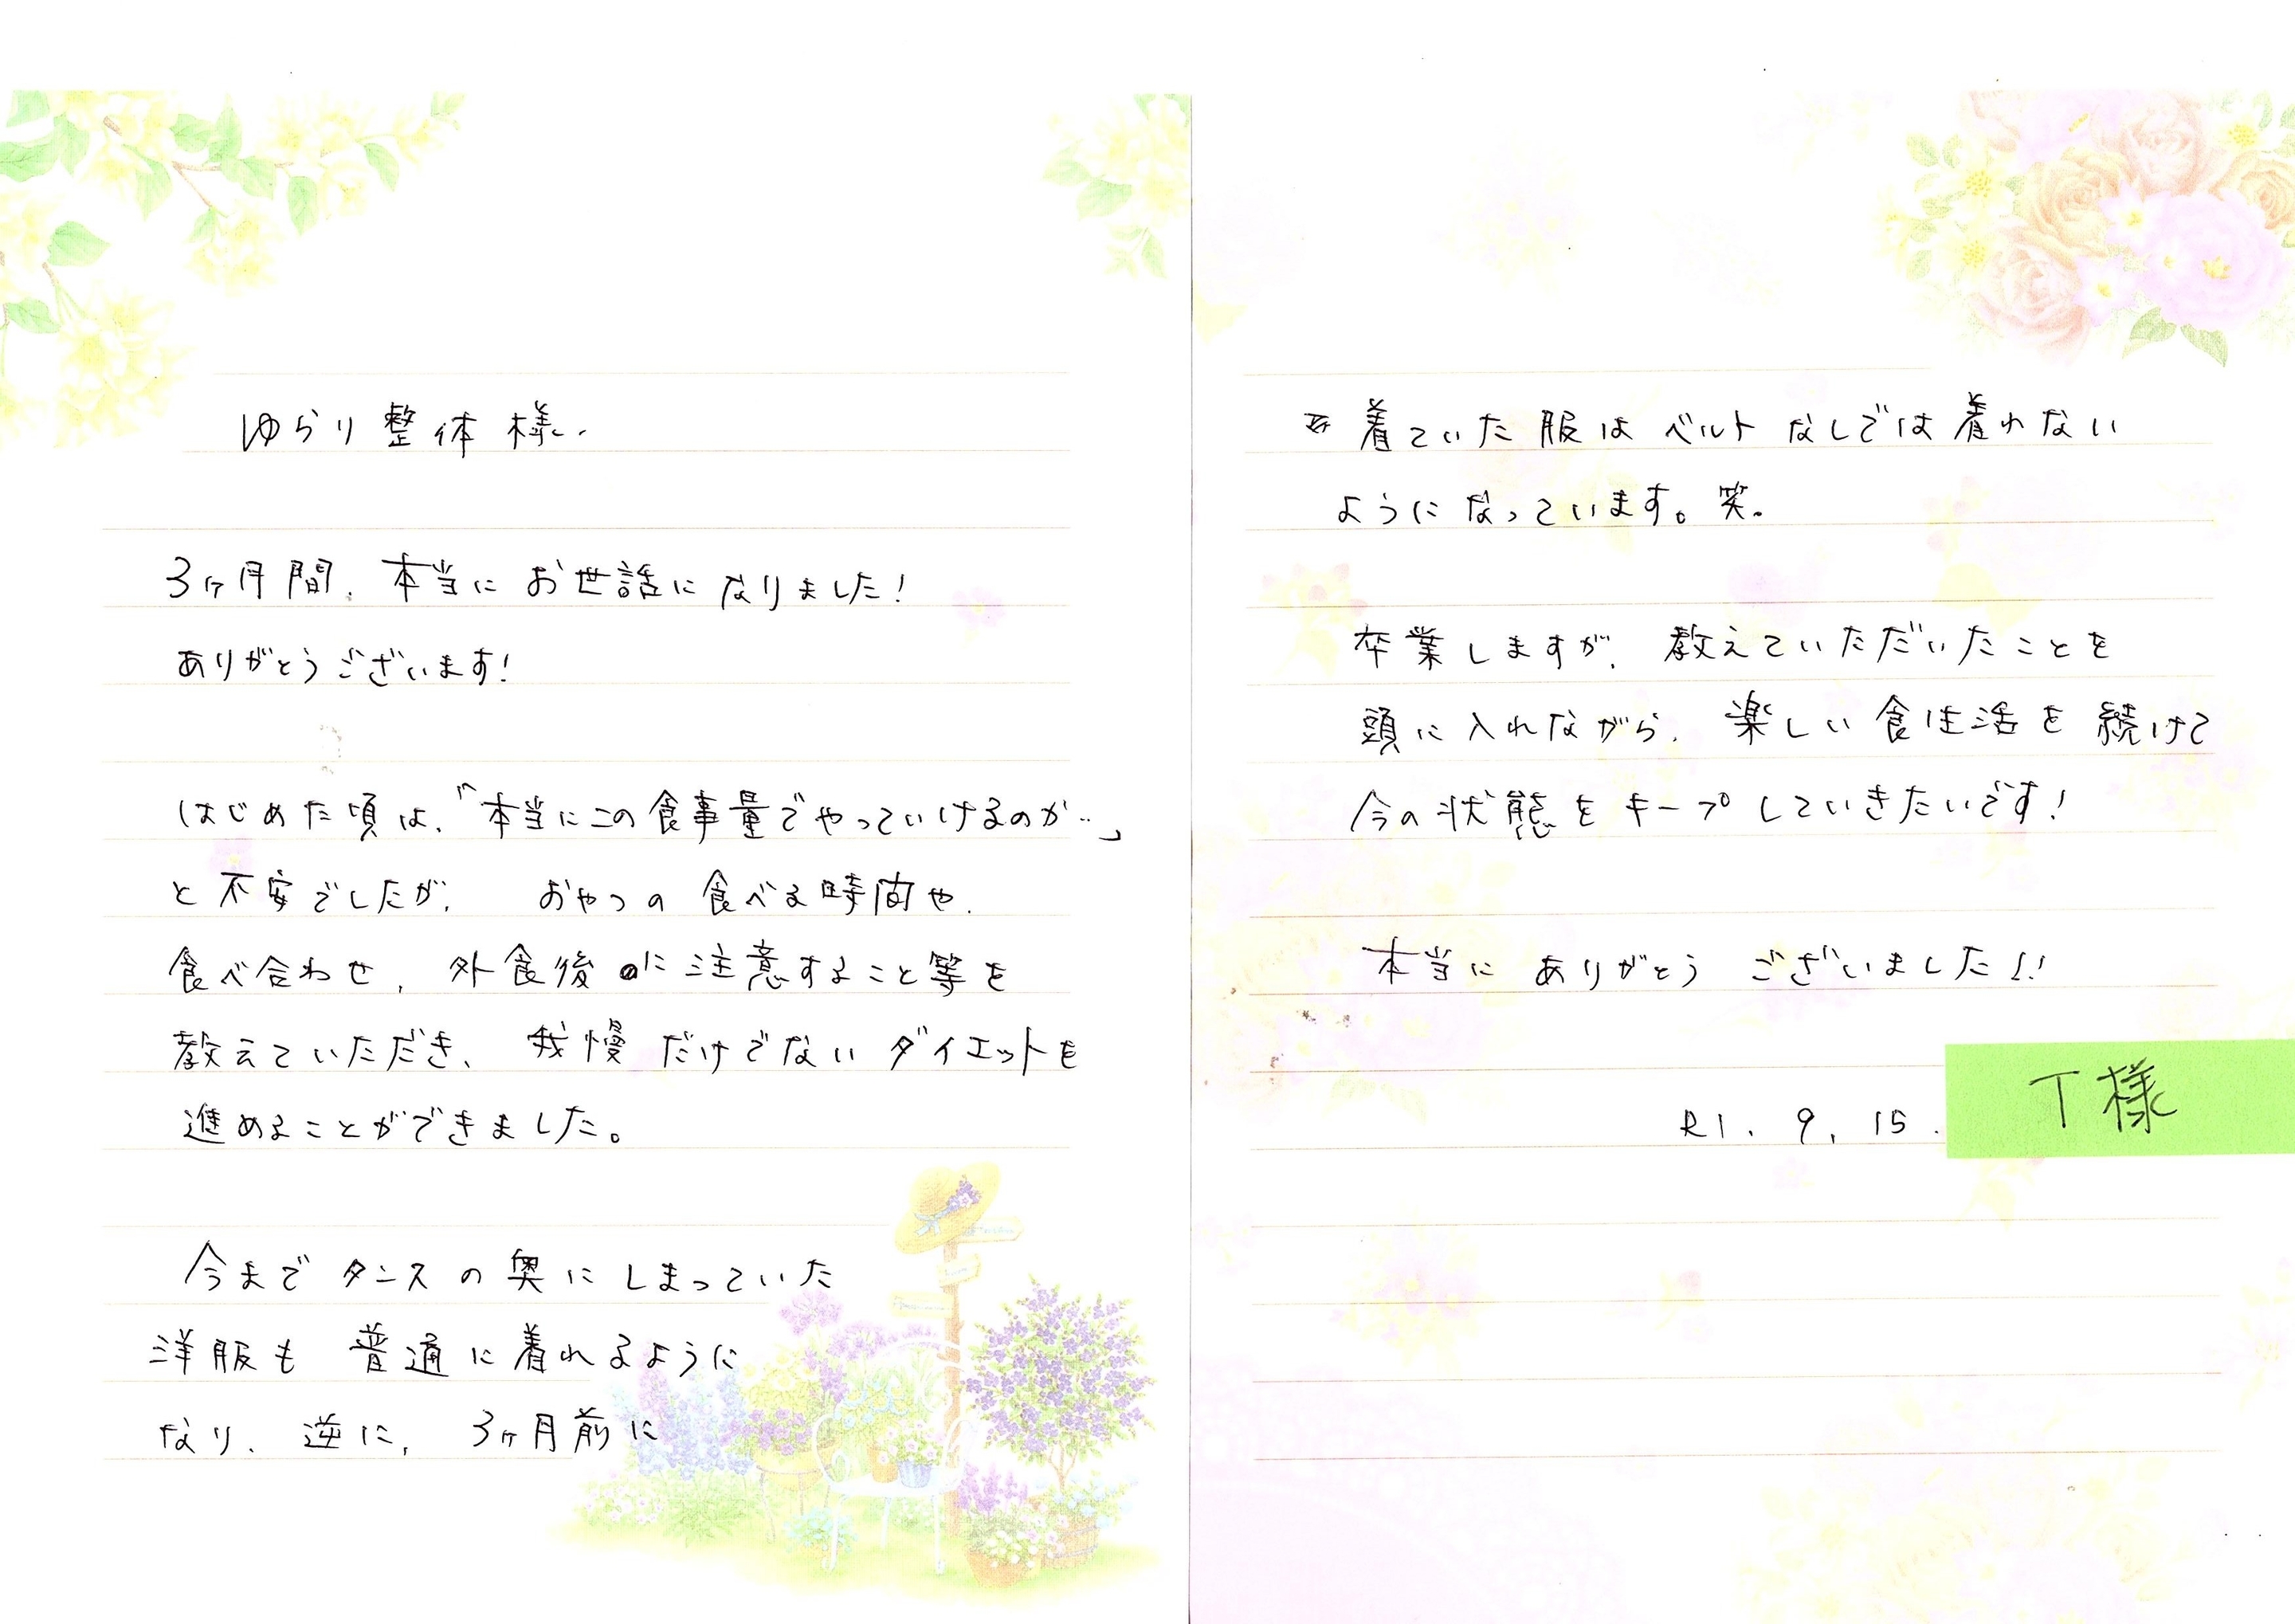 ゆらり整体様.
3ヶ月間、本当にお世話になりました!
ありがとうございます!
はじめた頃は、「本当にこの食事量でやっていけるのか…」
と不安でしたが、おやつの食べる時間や、
食べ合わせ、外食後に注意すること等を
教えていただき、我慢だけでないダイエットを
進めることができました。
今までタンスの奥にしまっていた
洋服も普通に着れるように
なり、逆に、3ヶ月前に
着ていた服はベルトなしでは着れない
ようになっています。笑。
卒業しますが、教えていただいたことを
頭に入れながら、楽しい食生活を続けて
今の状態をキープしていきたいです!
本当にありがとうございました!!
R1.9.15.
T様